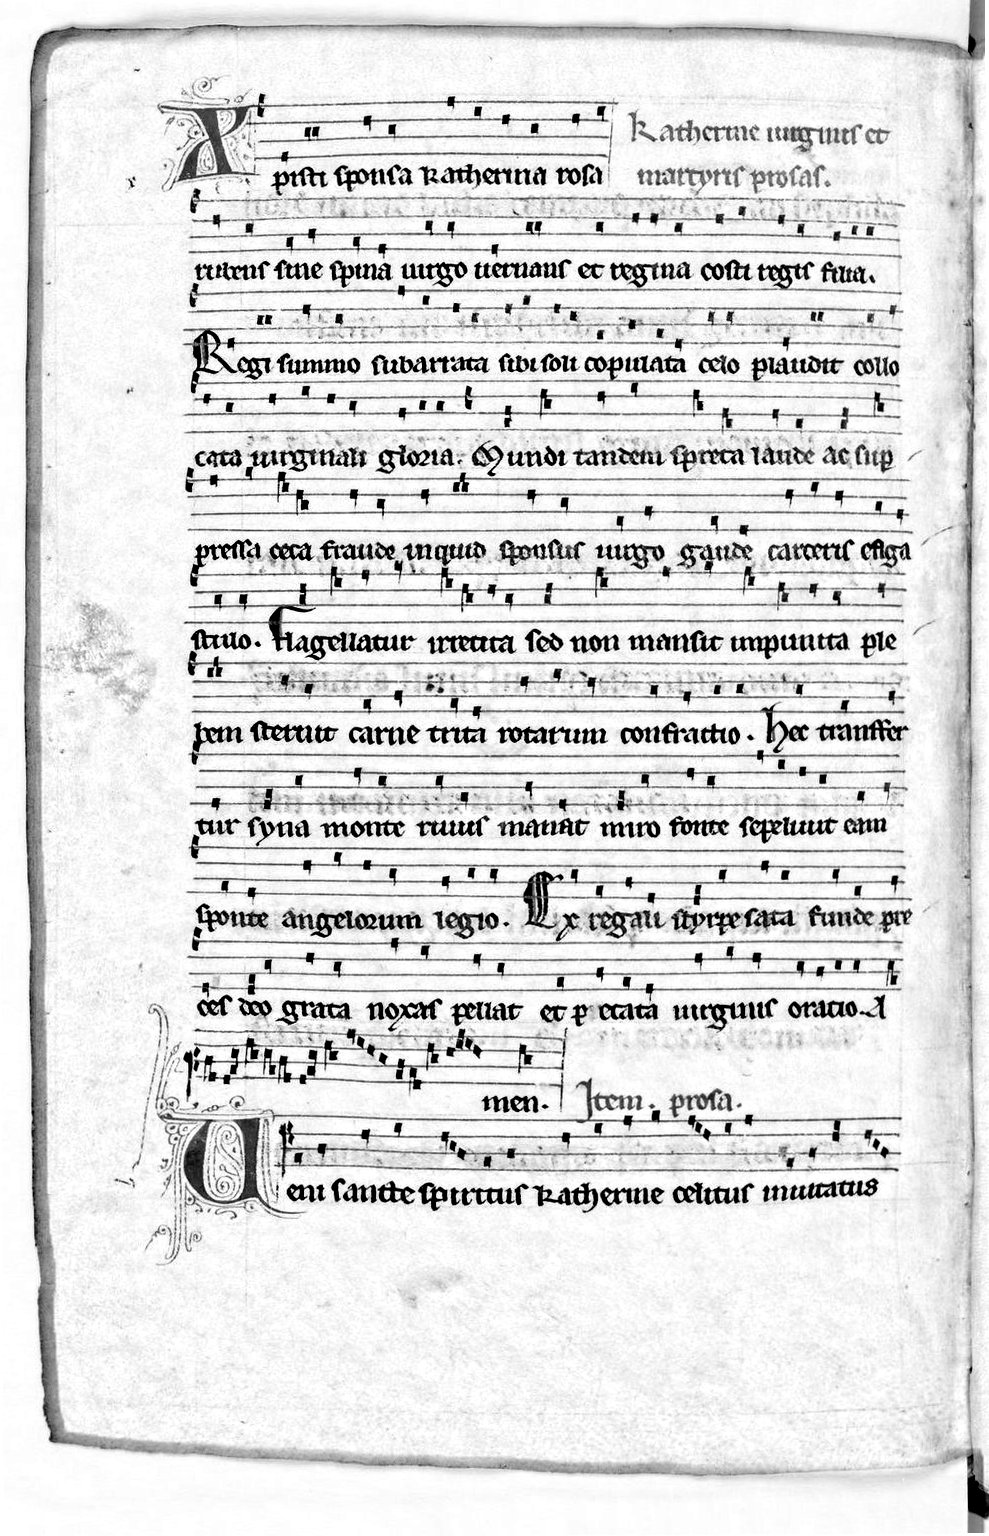 Xpisti sponsa katherina rosa
Katherine uirginis et
martyris prosas.
rubens sine spina uirgo uernans et regina costi regis filia.
Regi summo subarrata sibi soli copulata celo plaudit collo
cata uirginali gloria. Mundi tandem spreta laude ac sup
pressa ceca fraude inquid sponsus uirgo gaude carceris
stulo. flagellatur irretita sed non mansit inpunita ple
bem steruit carne trita rotarum confractio. hec transffer
tur syna monte riuus manat miro fonte sepeliuit eam
sponte angelorum legio. Ex regali styrpe sata funde pre
ces deo grata noxas pellat et p ctata uirginis oratio. A
men. Item. prosa.
Ueni sancte spiritus katherine celitus inuitatus